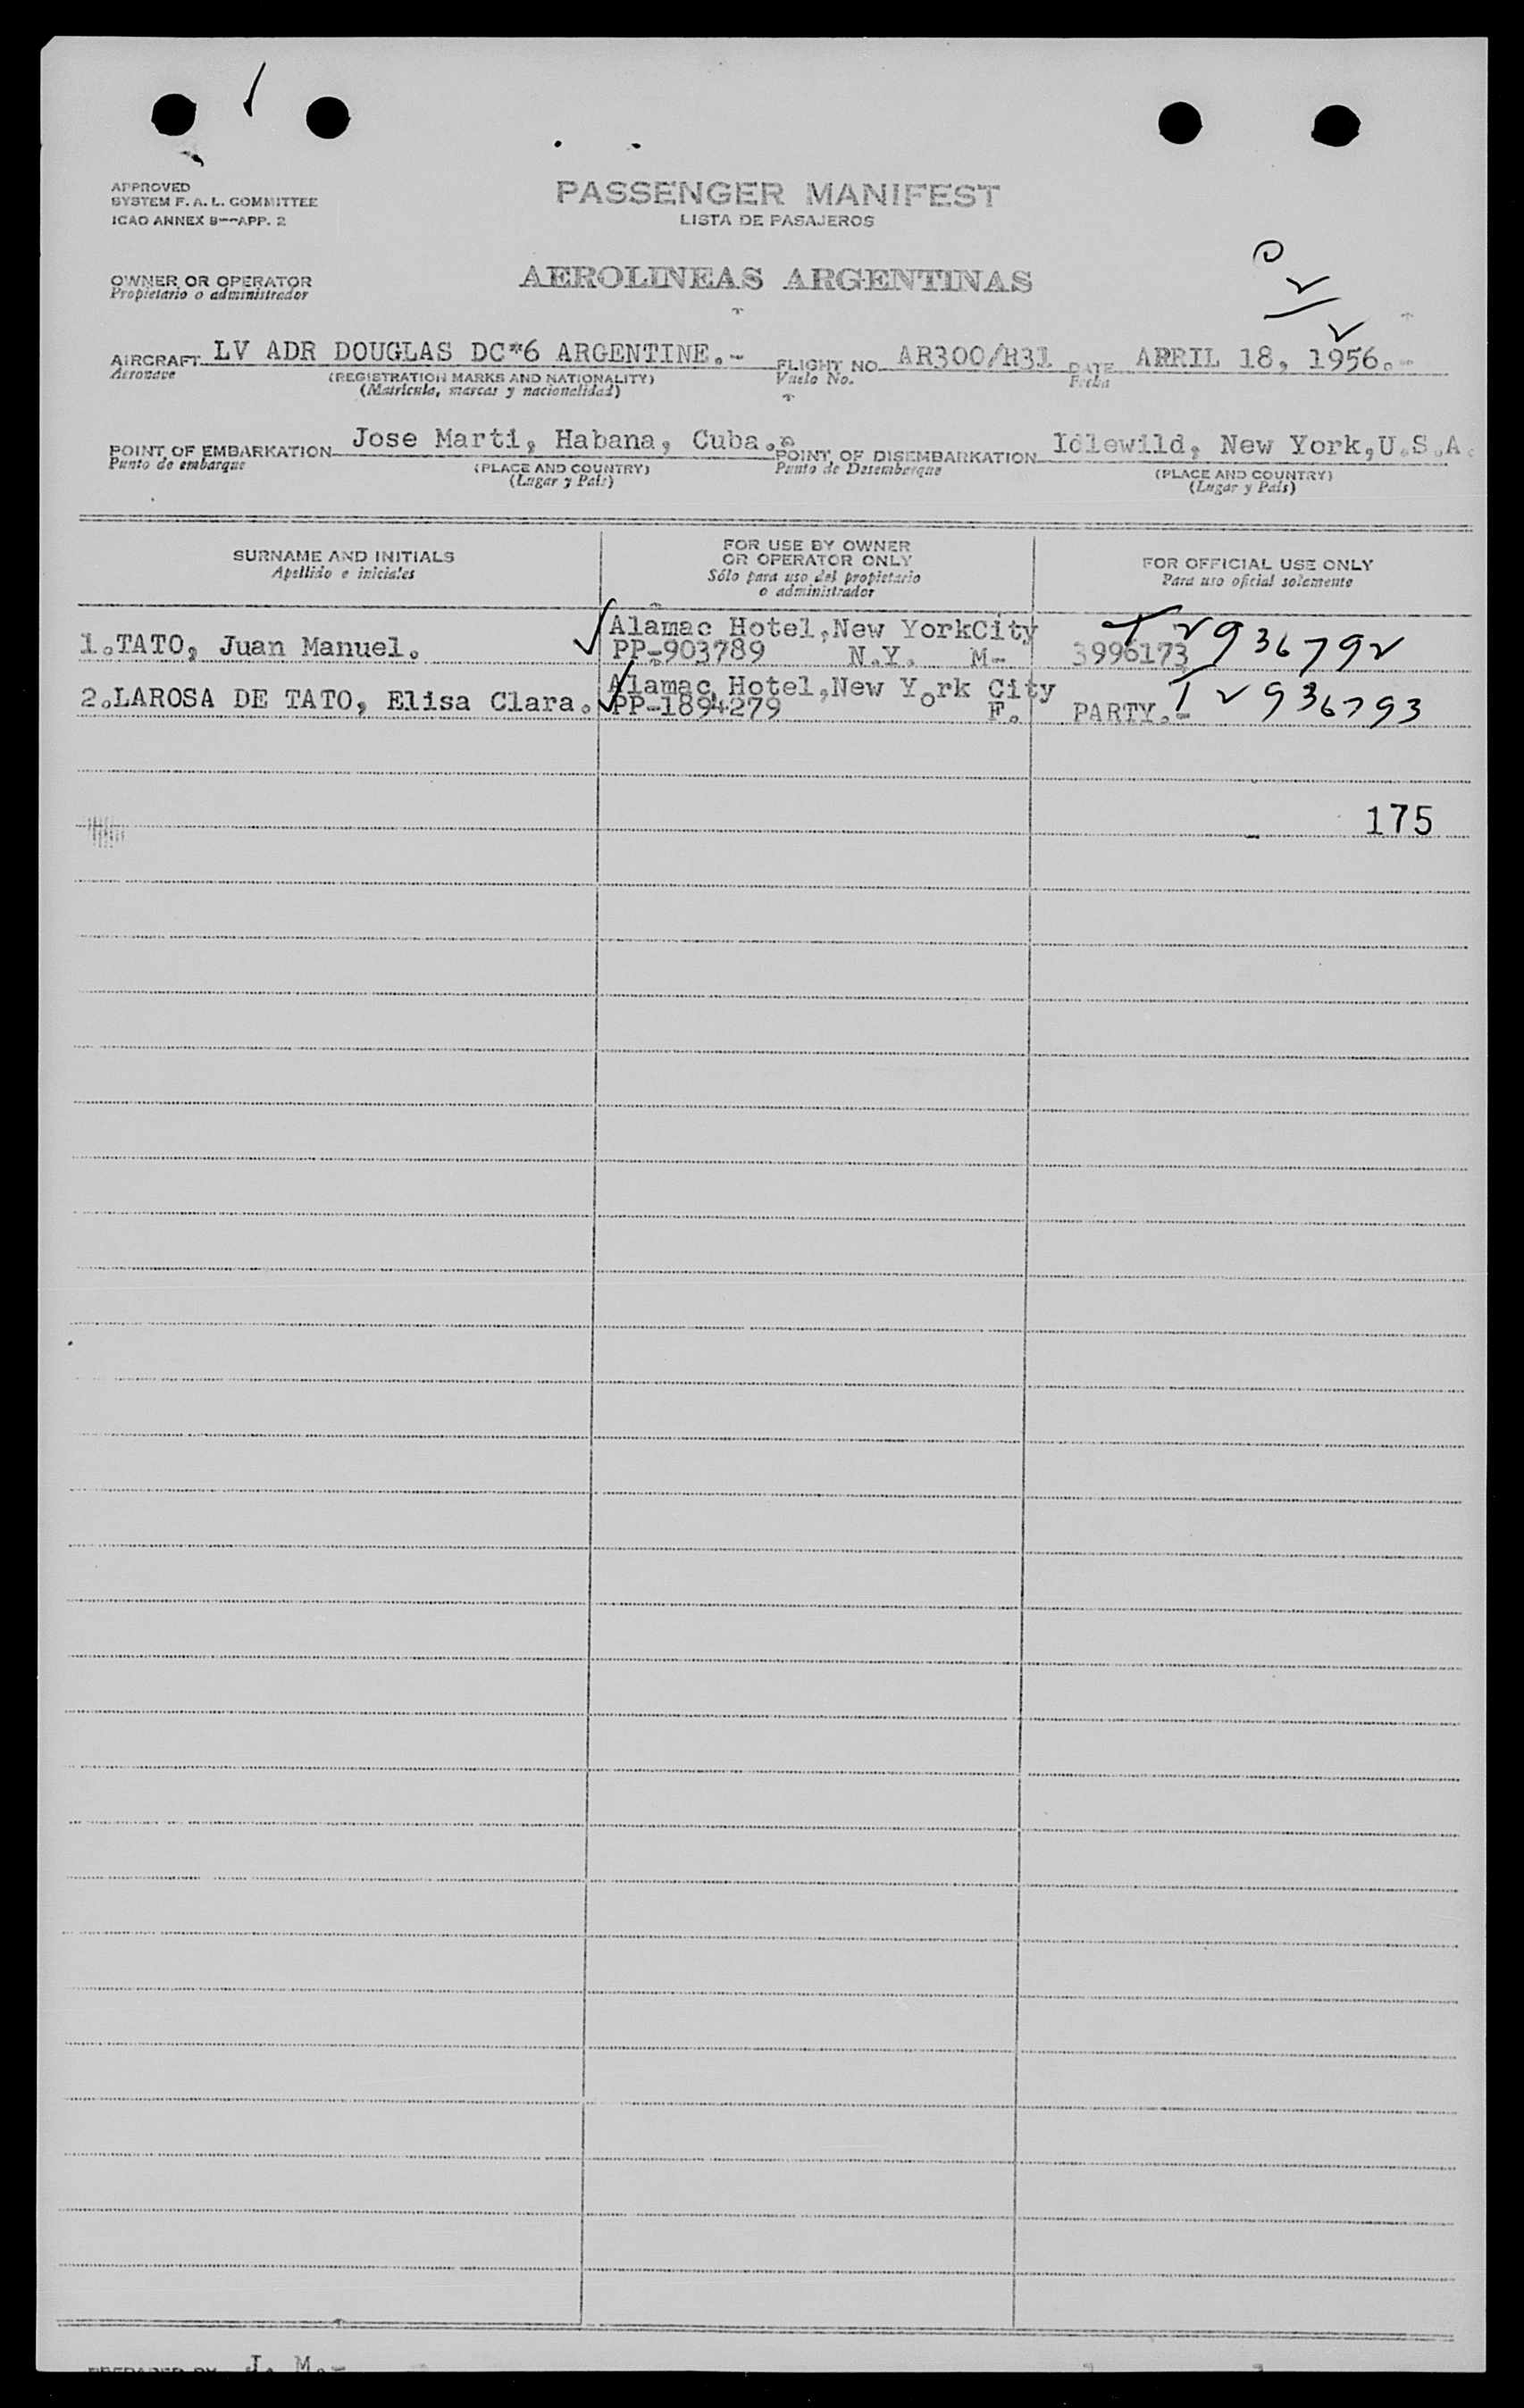 APPROVED
SYSTEM F. A. L. COMMITTEE
ICAO ANNEX 9--APP. 2
PASSENGER MANIFEST
LISTA DE PASAJEROS
OWNER OR OPERATOR
Propietario o administrador
AEROLINEAS ARGENTINAS
AIRCRAFT LV ADR DOUGLAS DC*6 ARGENTINE.- FLIGHT NO. AR300/H31 DATE APRIL 18, 1956.-
Aeronave (REGISTRATION MARKS AND NATIONALITY) Vuelo No. Fecha
(Matrícula, marcas y nacionalidad)
POINT OF EMBARKATION Jose Marti, Habana, Cuba. POINT OF DISEMBARKATION Idlewild, New York,U.S.A.
Punto de embarque (PLACE AND COUNTRY) Punto de Desembarque (PLACE AND COUNTRY)
(Lugar y País) (Lugar y País)
SURNAME AND INITIALS
Apellido e iniciales
FOR USE BY OWNER
OR OPERATOR ONLY
Sólo para uso del propietario
o administrador
FOR OFFICIAL USE ONLY
Para uso oficial solamente
1.TATO, Juan Manuel.
Alamac Hotel,New YorkCity
PP-903789 N.Y. M-
3996173 T 2936792
2.LAROSA DE TATO, Elisa Clara.
Alamac Hotel,New York City
PP-1894279 F.
PARTY.- T 2936793
175
PREPARED BY J. M.-